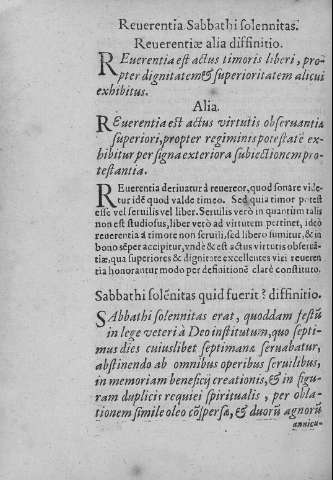 Reuerentia Sabbathi solennitas.
Reuerentiæ alia diffinitio.
REuerentia est actus timoris liberi, pro-
pter dignitatem & superioritatem alicui
exhibitus.
Alia.
REuerentia est actus virtutis obseruantia
superiori, propter regiminis potestatē ex-
hibitur per signa exteriora subiectionem pro-
testantia.
REuerentia deriuatur à reuereor, quod sonare vide-
tur idē quod valde timeo. Sed quia timor potest
esse vel seruilis vel liber. Seruilis verò in quantum talis
non est studiosus, liber verò ad virtutem pertinet, ideò
reuerentia à timore non seruili, sed libero sumitur, & in
bono sēper accipitur, vnde & est actus virtutis obseruā-
tiæ, qua superiores & dignitate excellentes viri reueren
tia honorantur modo per definitionē clarè constituto.
Sabbathi solēnitas quid fuerit? diffinitio.
SAbbathi solennitas erat, quoddam festū
in lege veteri à Deo institutum, quo septi-
mus dies cuiuslibet septimanæ seruabatur,
abstinendo ab omnibus operibus seruilibus,
in memoriam beneficij creationis, & in figu-
ram duplicis requiei spiritualis, per obla-
tionem similæ oleo cōspersæ, & duorū agnorū
annicu-